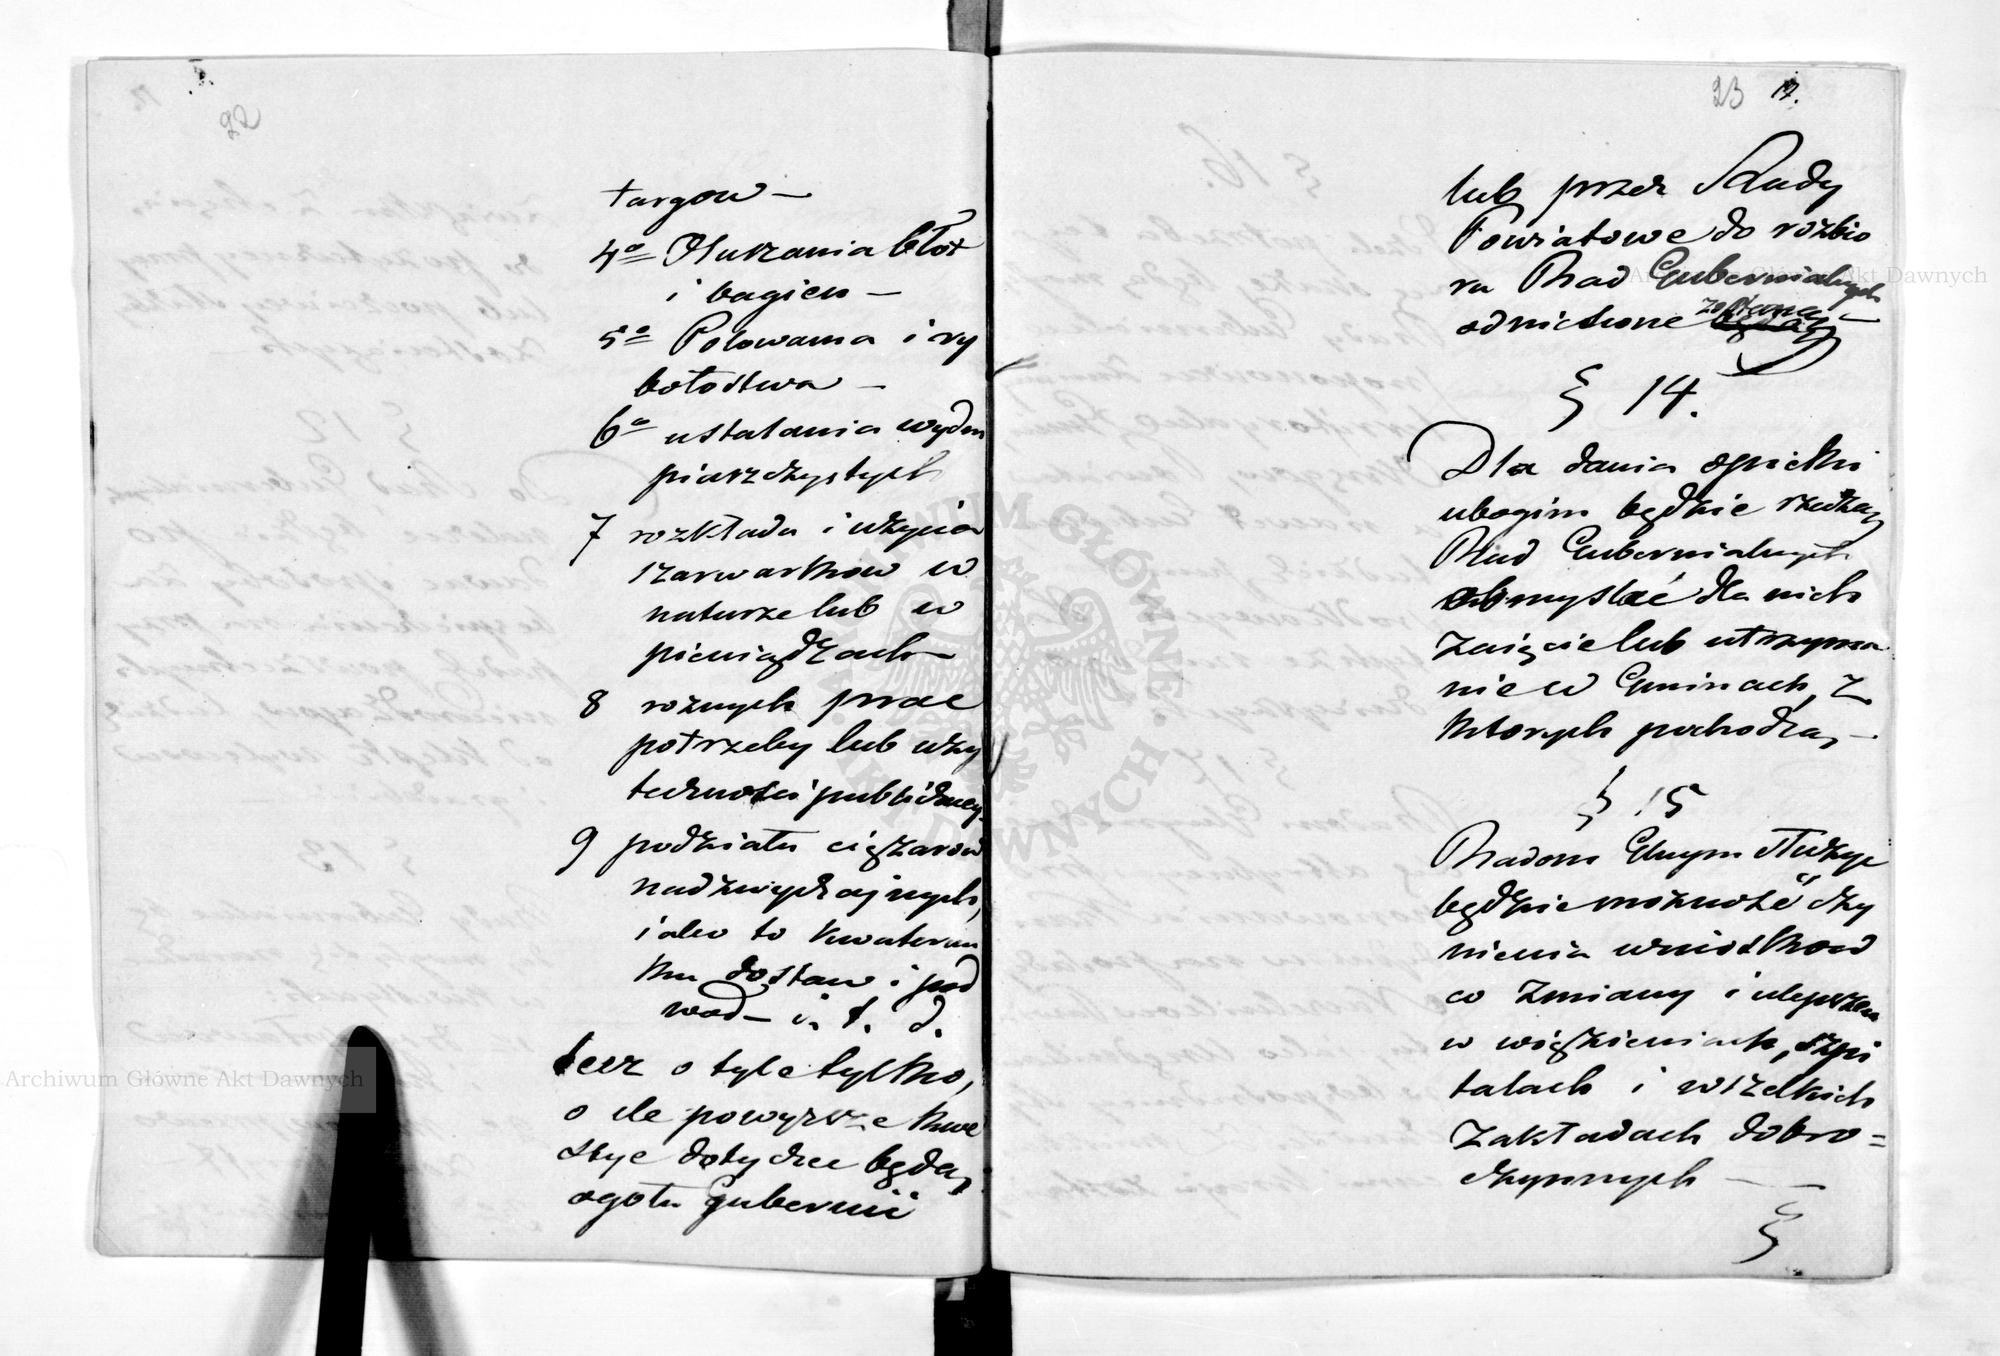 22
targow —
4o Osuszania błot
i bagien —
5o Polowania i ry
bołostwa —
6o ustalania wydm
piaszczystych
7 rozkładu i użycia
szarwarkow w
naturze lub w
pieniądzach —
8 roznych prac
potrzeby lub uży
teczności publicznej
9 podziału ciężarow
nadzwyczajnych,
iako to kwaterun
ku dostaw i pod
wod — i. t. d.
lecz o tyle tylko,
o ile powyższe kwe
stye dotyczec będą,
ogołu gubernii
23 17.
lub przez Rady
Powiatowe do rozbio
ru Rad Gubernialnych
odniesione zostaną —
§ 14.
Dla dania opieki
ubogim będzie rzeczą
Rad Gubernialnych
obmyslać dla nich
zaięcie lub utrzyma
nie w Gminach, z
ktorych pochodzą, —
§ 15
Radom Gbnym służyć
będzie możność czy
nienia wniosków
co zmiany i ulepszen
w więzieniach, szpi
talach i wszelkich
zakładach dobro=
czynnych —
§
Archiwum Główne Akt Dawnych
Archiwum Główne Akt Dawnych
ARCHIWUM GŁÓWNE AKT DAWNYCH W WARSZAWIE